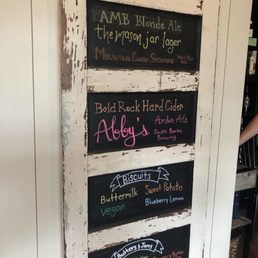 AMB Blonde Ale
the mason jar lager
Mountain Candy Sycamore
Bold Rock Hard Cider
Abby's Amber Ale
Double Barley
Brewing
Biscuits
Buttermilk Sweet Potato
Vegan Blueberry Lemon
Butters & Jams